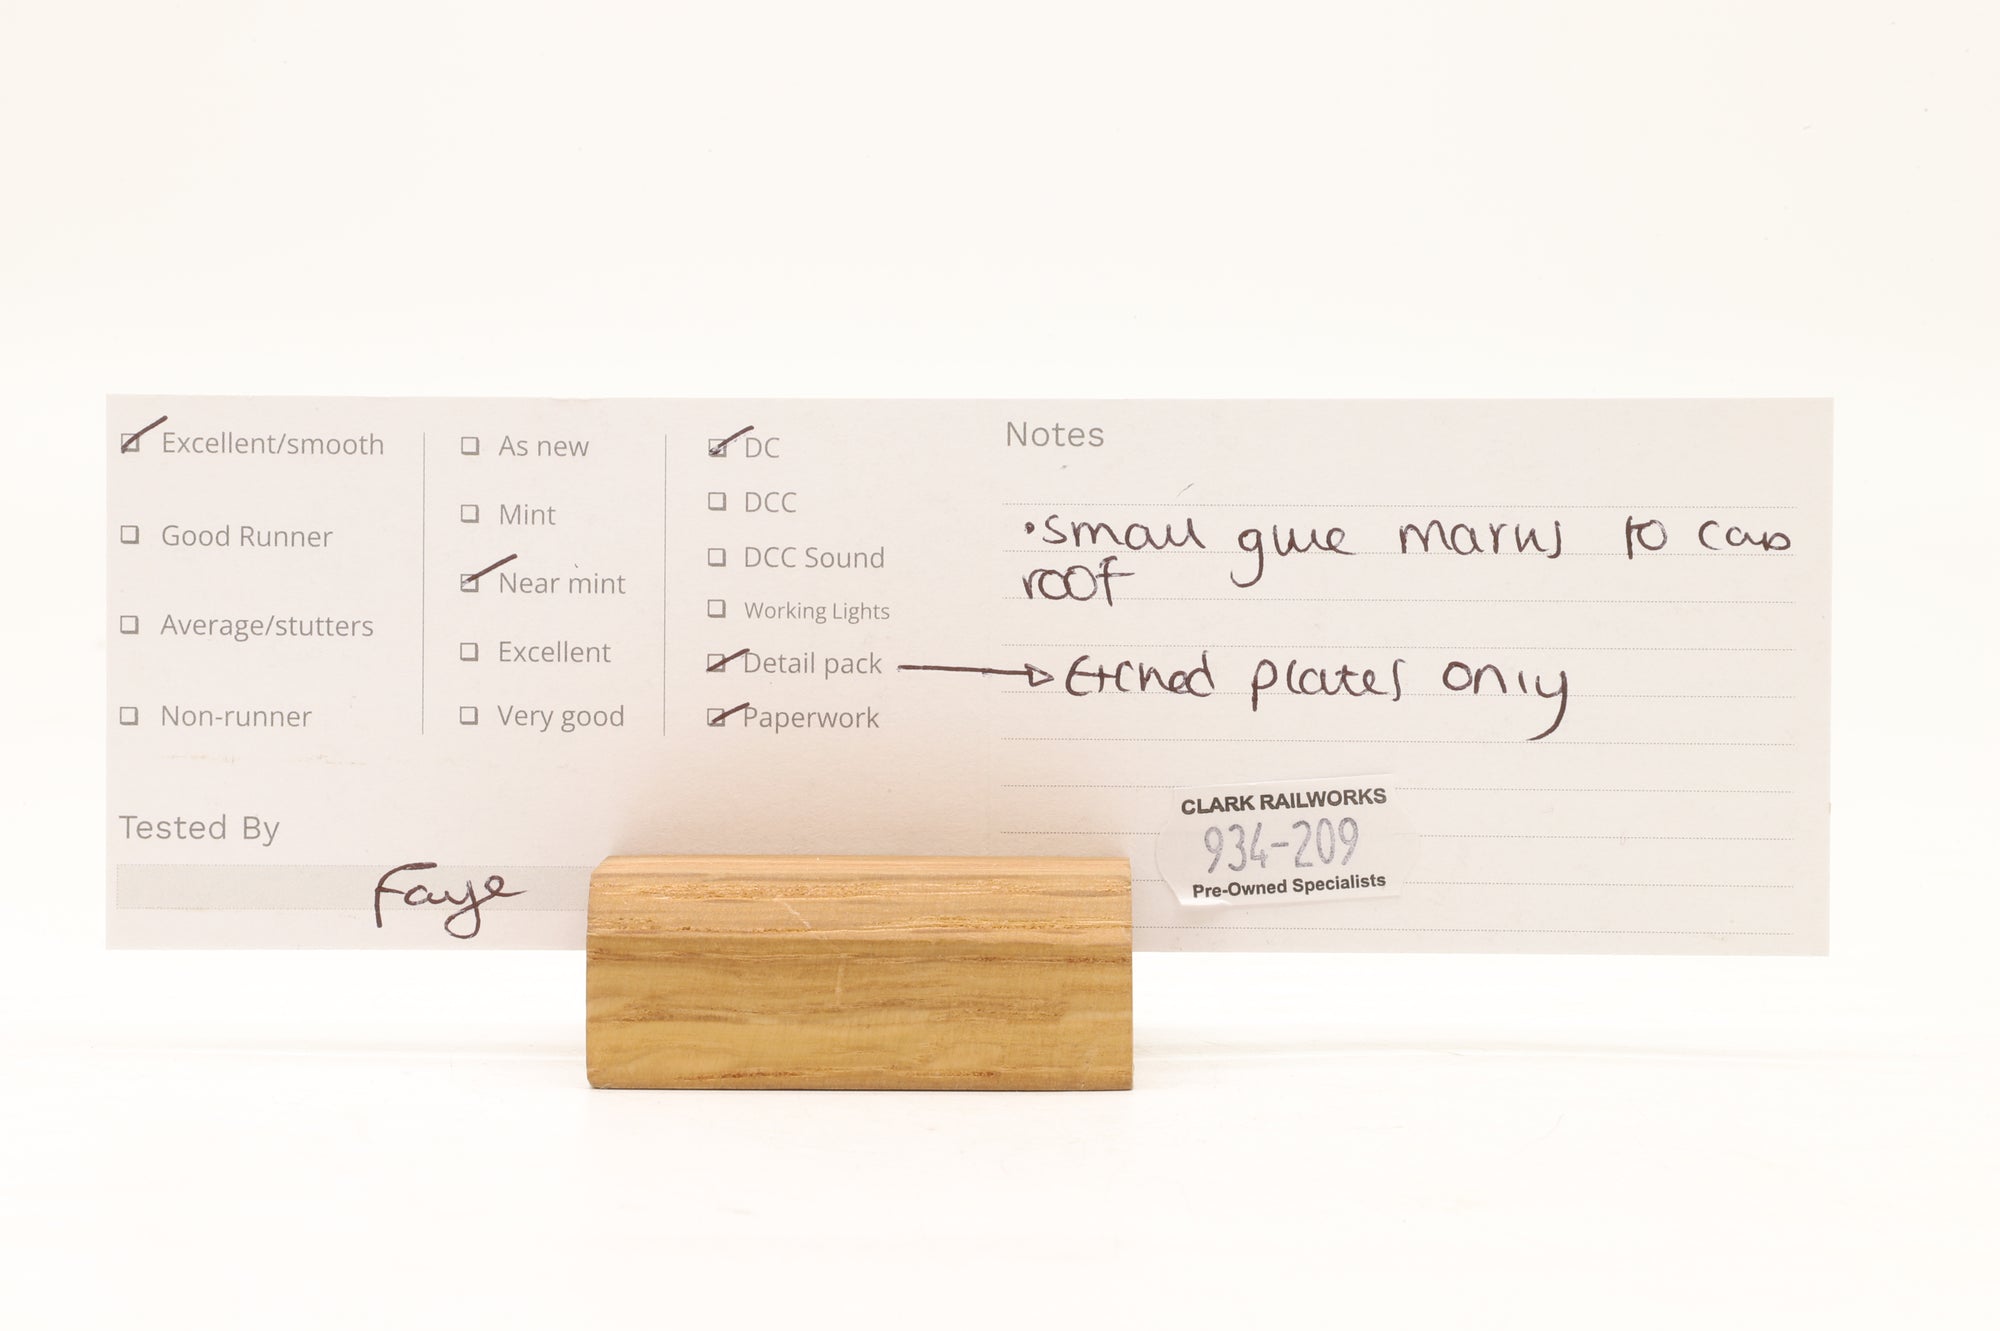 Excellent/smooth
Good Runner
Average/stutters
Non-runner
As new
Mint
Near mint
Excellent
Very good
DC
DCC
DCC Sound
Working Lights
Detail pack
Paperwork
Notes
•small glue marks to cab
roof
Etched plates only
Tested By
Faye
CLARK RAILWORKS
934-209
Pre-Owned Specialists